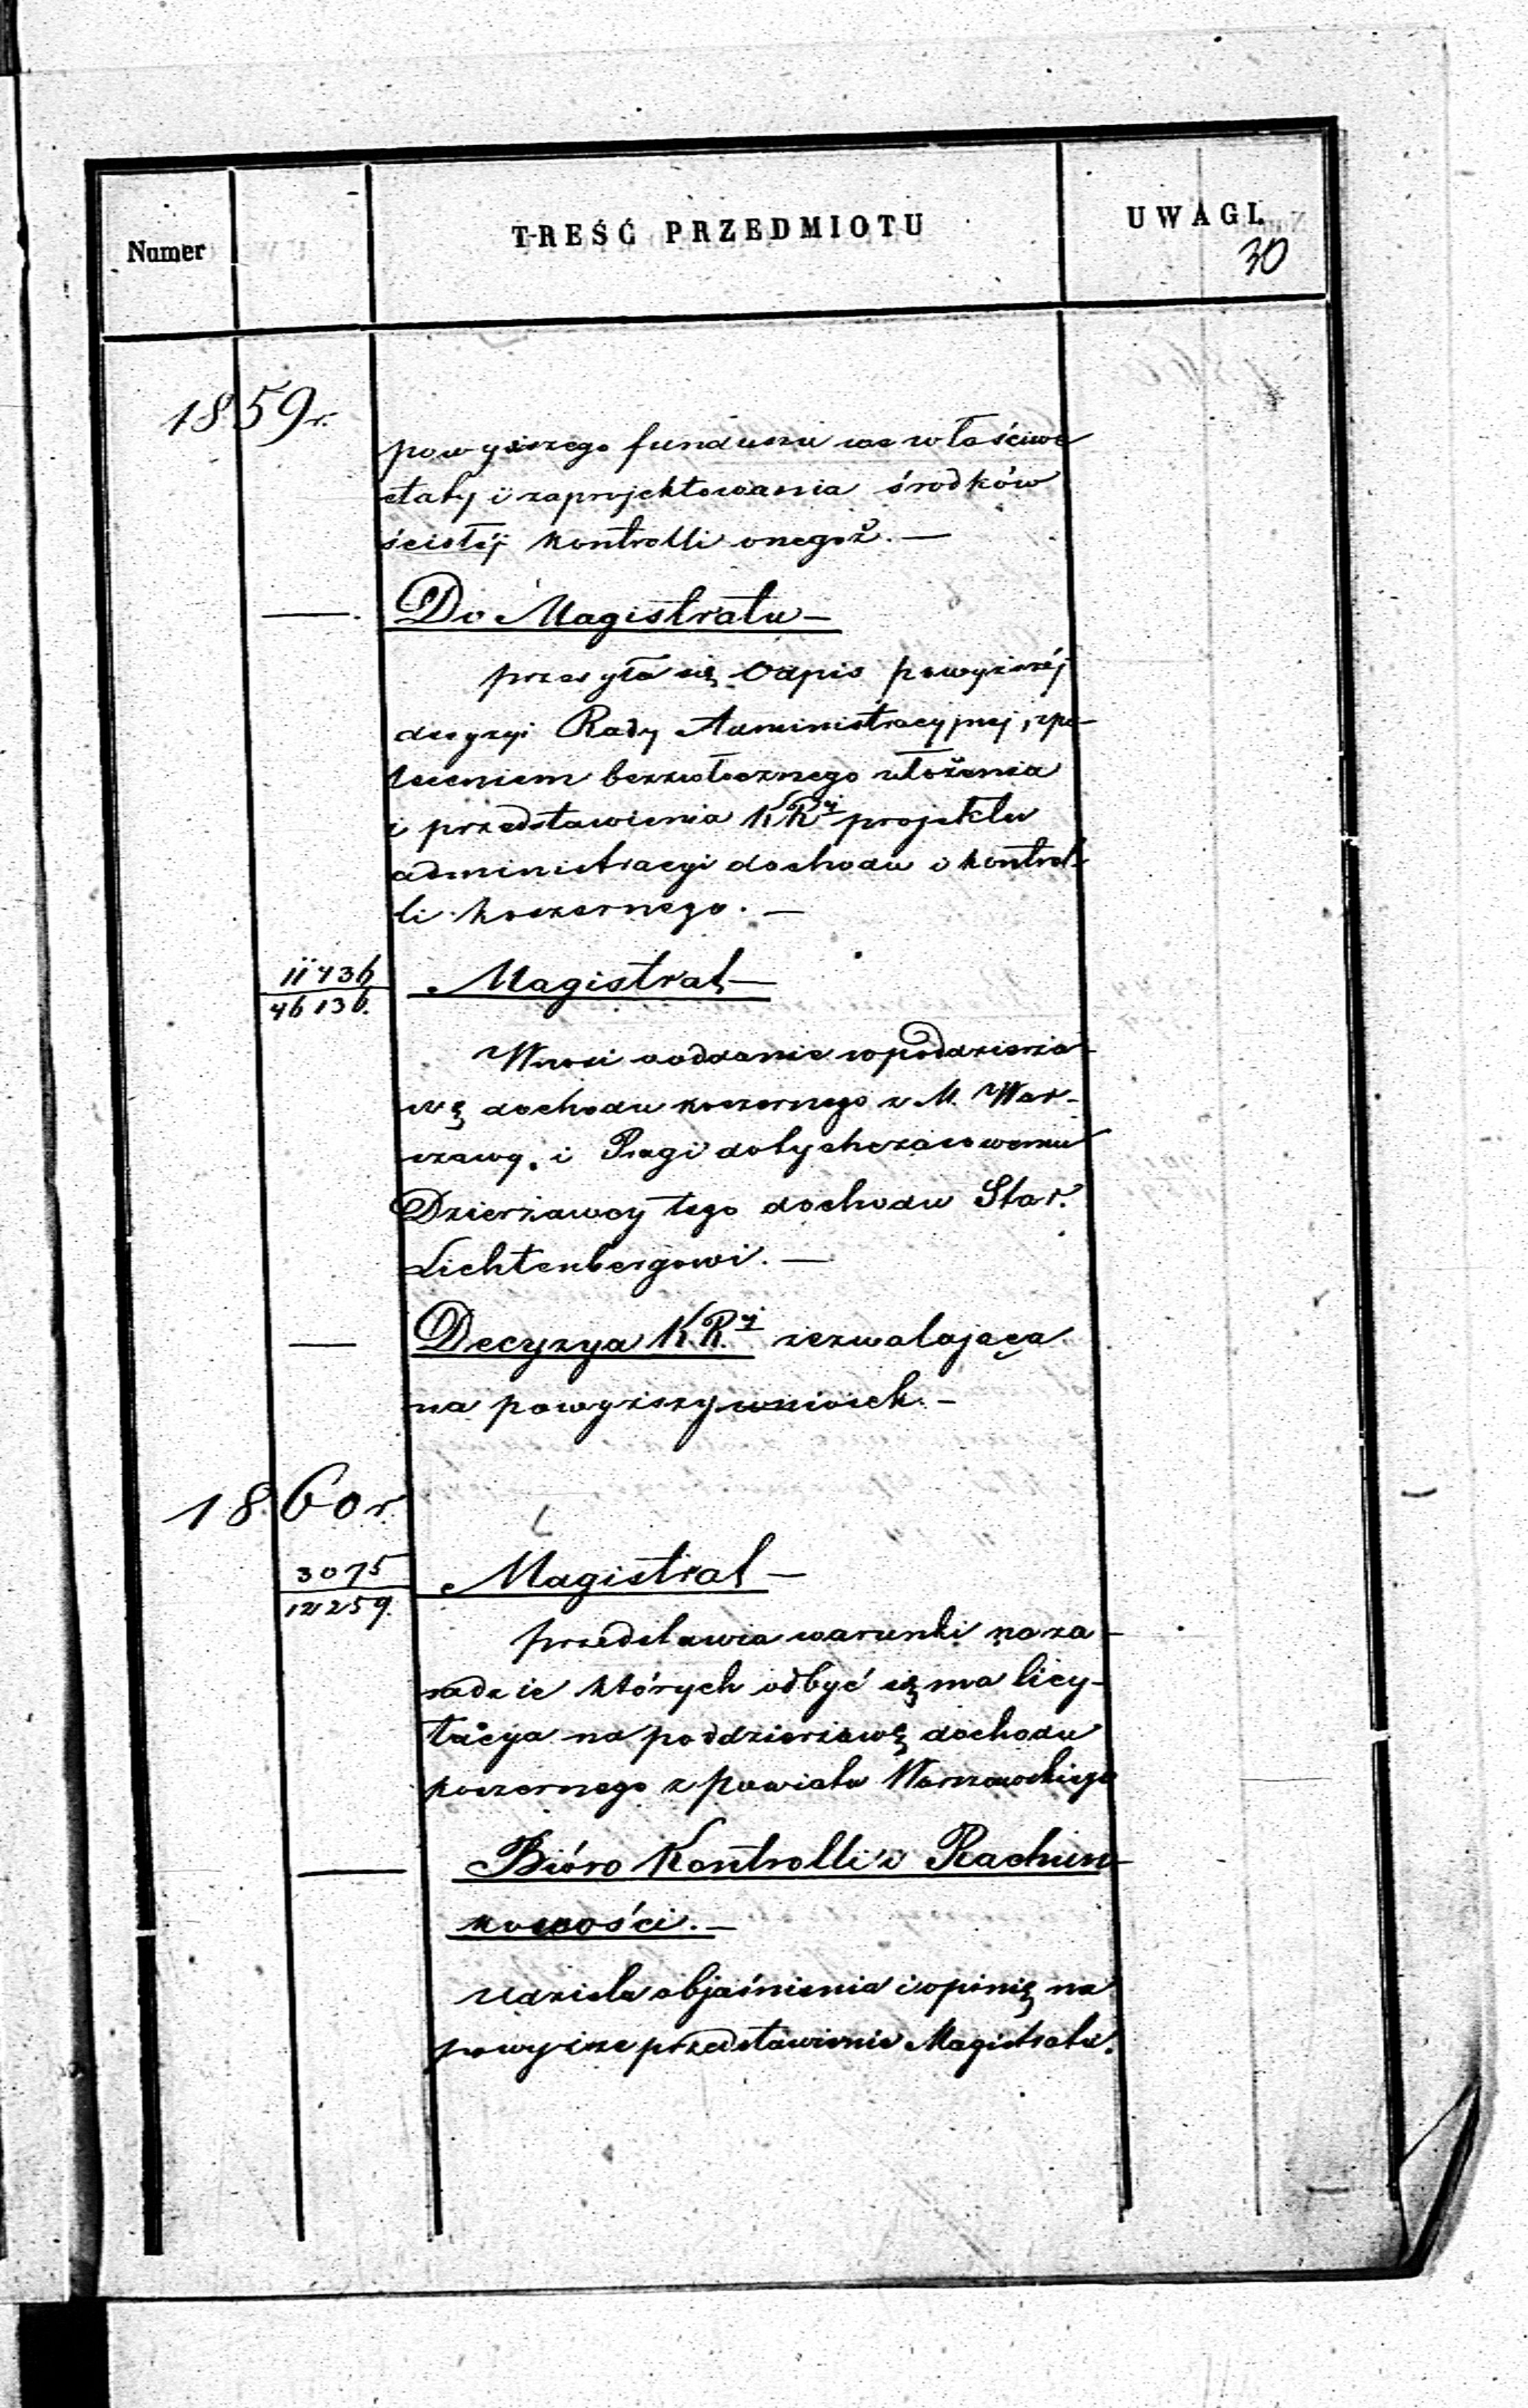 Numer
TREŚĆ PRZEDMIOTU
UWAGI.
30
1859 r.
powyższego funduszu we właściwe
etaty i zaprojektowania środków
ścisłéj kontrolli onegoż. —
— Do Magistratu —
przesyła się Odpis powyższéj
decyzyi Rady Administracyjnej, z po-
leceniem bezzwłocznego ułożenia
i przedstawienia KRyi projektu
administracyi dochodu i kontrol-
li koszernego. —
11436
46136.
Magistrat —
Wnosi o oddanie w poddzierża-
wę dochodu koszernego z M. War-
szawy i Pragi dotychczasowemu
Dzierżawcy tego dochodu Star.
Lichtenbergowi. —
— Decyzya K.R.yi zezwalająca
na powyższy wniosek. —
1860 r.
3075
12259.
Magistrat —
przedstawia warunki na za-
sadzie których odbyć się ma licy-
tacya na poddzierżawę dochodu
koszernego z powiatu Warszawskiego
— Bióro Kontrolli i Rachun-
kowości. —
Udziela objaśnienia i opinię na
powyższe przedstawienie Magistratu.